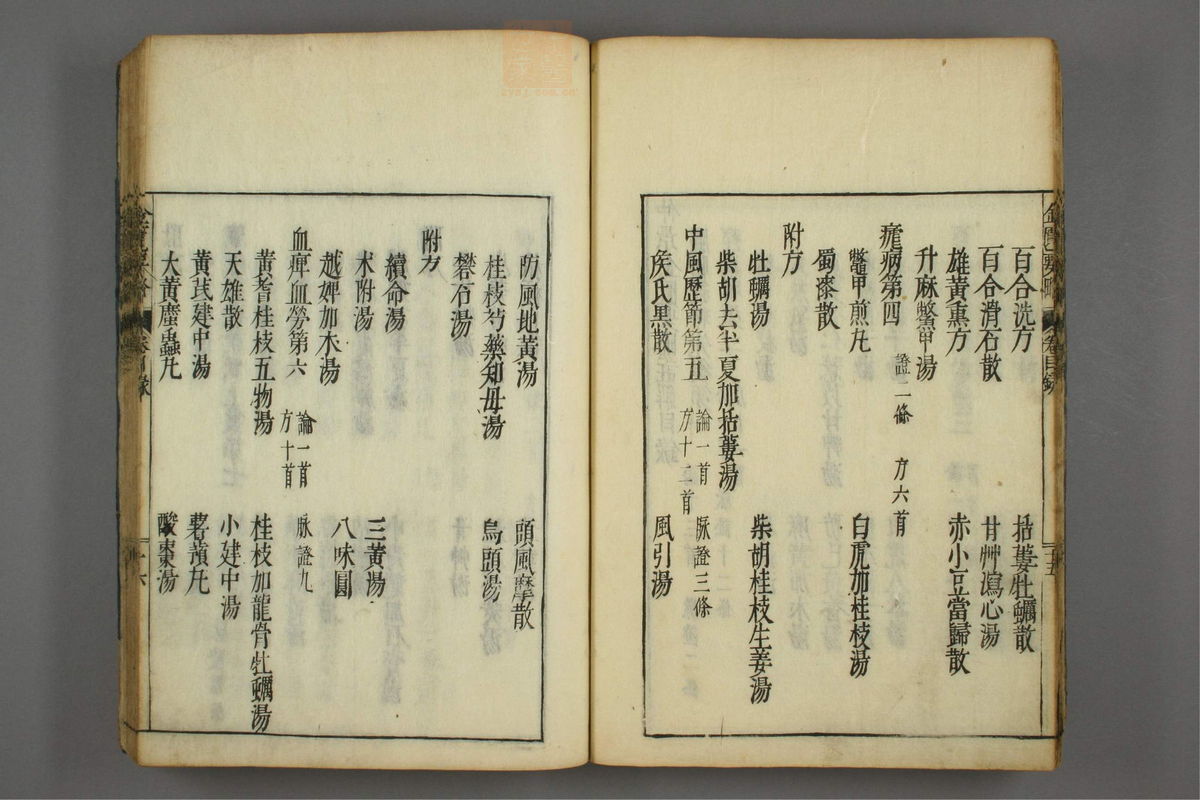 金匱要略 卷目錄 十五
百合洗方 括蔞牡蠣散
百合滑石散 甘艸瀉心湯
雄黃熏方 赤小豆當歸散
升麻鼈甲湯
瘧病第四 證二條 方六首
鼈甲煎丸 白虎加桂枝湯
蜀漆散
附方
牡蠣湯 柴胡桂枝生姜湯
柴胡去半夏加括蔞湯
中風歷節第五 論一首 脉證三條 方十二首
矦氏黑散 風引湯
防風地黃湯 頭風摩散
桂枝芍藥知母湯 烏頭湯
礬石湯
附方
續命湯 三黃湯
术附湯 八味圓
越婢加术湯
血痺血勞第六 論一首 脉證九 方十首
黃耆桂枝五物湯 桂枝加龍骨牡蠣湯
天雄散 小建中湯
黃芪建中湯 薯蕷丸
大黃䗪蟲丸 酸棗湯
卷目錄 十六